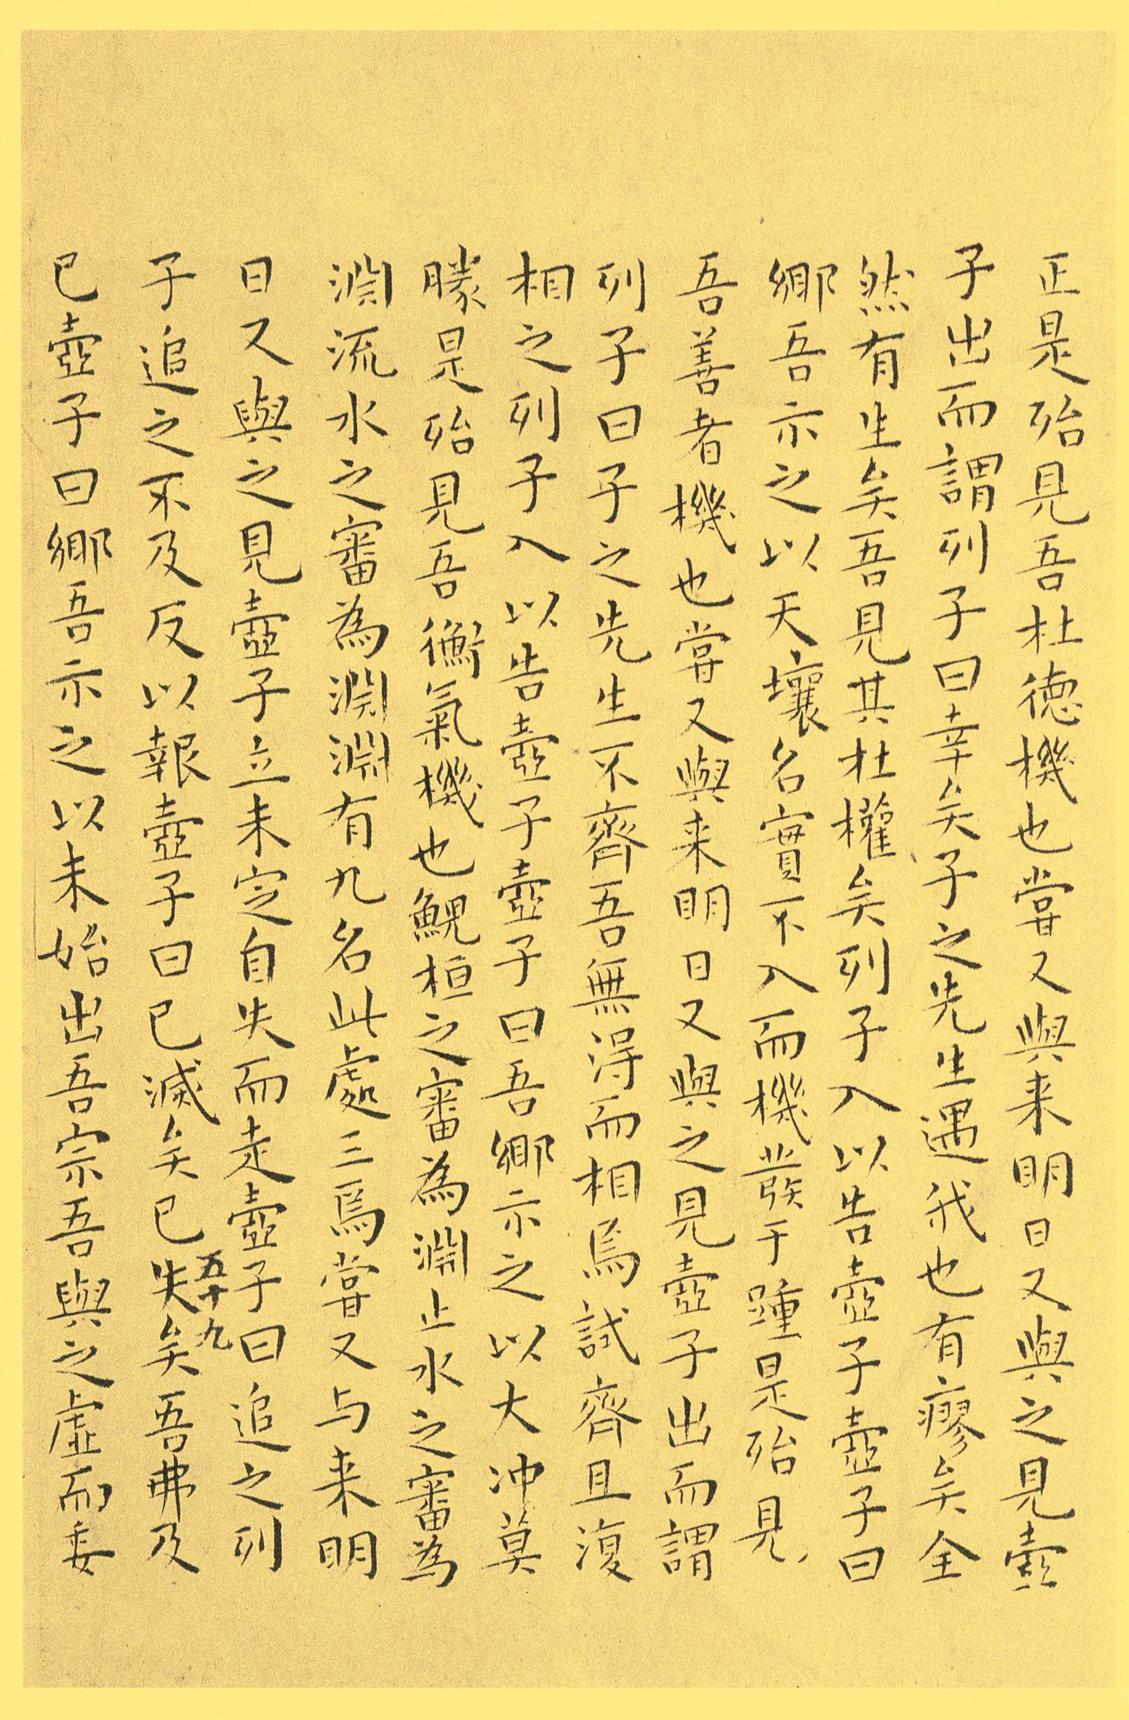 正是殆見吾杜德機也嘗又與来明日又與之見壺
子出而謂列子曰幸矣子之先生遇我也有瘳矣全
然有生矣吾見其杜權矣列子入以告壺子壺子曰
鄉吾示之以天壤名實不入而機發于踵是殆見
吾善者機也嘗又與来明日又與之見壺子出而謂
列子曰子之先生不齊吾無淂而相焉試齊且復
相之列子入以告壺子壺子曰吾鄉示之以大冲莫
勝是殆見吾衡氣機也鯢桓之審為淵止水之審為
淵流水之審為淵淵有九名此處三焉嘗又与来明
日又與之見壺子立未定自失而走壺子曰追之列
子追之不及反以報壺子曰已滅矣已失矣吾弗及
五十九
已壺子曰鄉吾示之以未始出吾宗吾與之虛而委